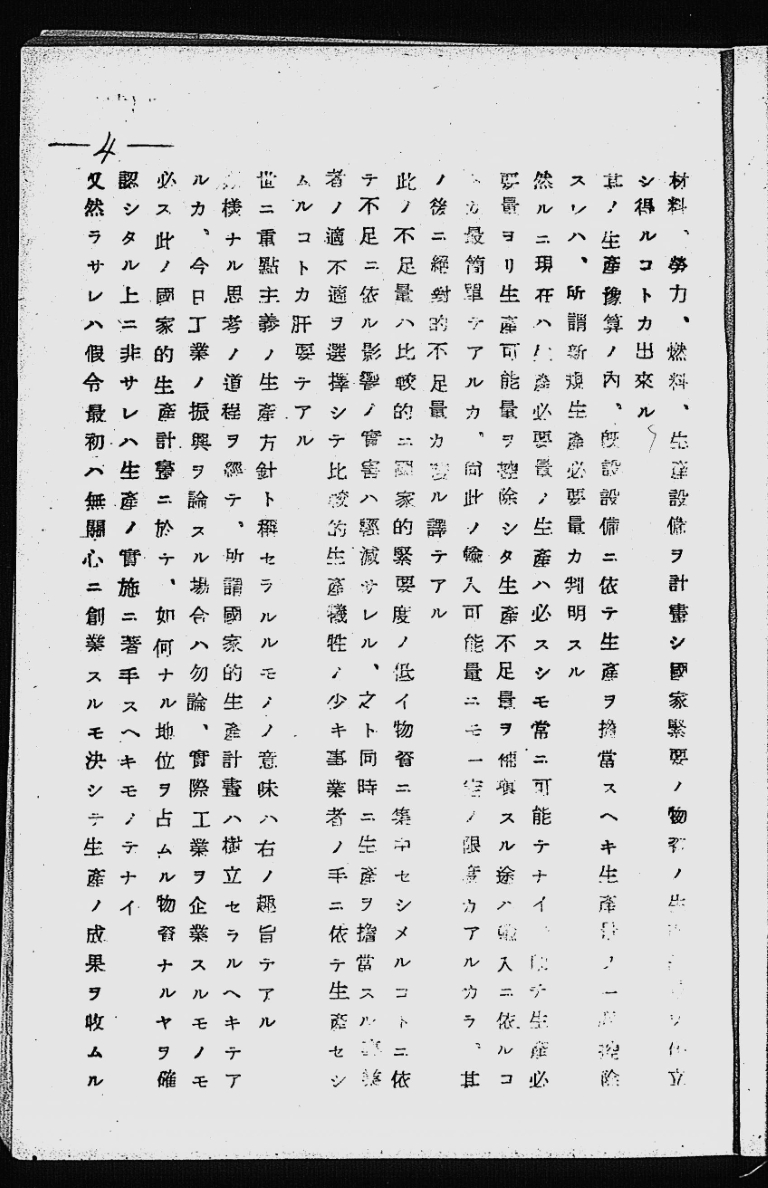 ―4―
材料、勞力、燃料、生產設備ヲ計畫シ國家緊要ノ物資ノ生 ヲ 立
シ得ルコトカ出來ル
其ノ生產豫算ノ內、既設設備ニ依テ生產ヲ擔當スヘキ生產量ノ一 控除
スレハ、所謂新規生產必要量カ判明スル
然ルニ現在ハ生產必要量ノ生產ハ必スシモ常ニ可能テナイ 生產必
要量ヨリ生產可能量ヲ控除シタ生產不足量ヲ補塡スル途ハ輸入ニ依ルコ
トカ最簡單テアルカ、尙此ノ輸入可能量ニモ一定ノ限度カアルカラ、其
ノ後ニ絕對的不足量カ殘ル譯テアル
此ノ不足量ハ比較的ニ國家的緊要度ノ低イ物資ニ集中セシメルコトニ依
テ不足ニ依ル影響ノ實害ハ輕減サレル、之ト同時ニ生產ヲ擔當スル事業
者ノ適不適ヲ選擇シテ比較的生產犧牲ノ少キ事業者ノ手ニ依テ生產セシ
ムルコトカ肝要テアル
世ニ重點主義ノ生產方針ト稱セラルルモノノ意味ハ右ノ趣旨テアル
樣ナル思考ノ道程ヲ經テ、所謂國家的生產計畫ハ樹立セラルヘキテア
ルカ、今日工業ノ振興ヲ論スル場合ハ勿論、實際工業ヲ企業スルモノモ
必ス此ノ國家的生產計畫ニ於テ、如何ナル地位ヲ占ムル物資ナルヤヲ確
認シタル上ニ非サレハ生產ノ實施ニ著手スヘキモノテナイ
又然ラサレハ假令最初ハ無關心ニ創業スルモ決シテ生產ノ成果ヲ收ムル